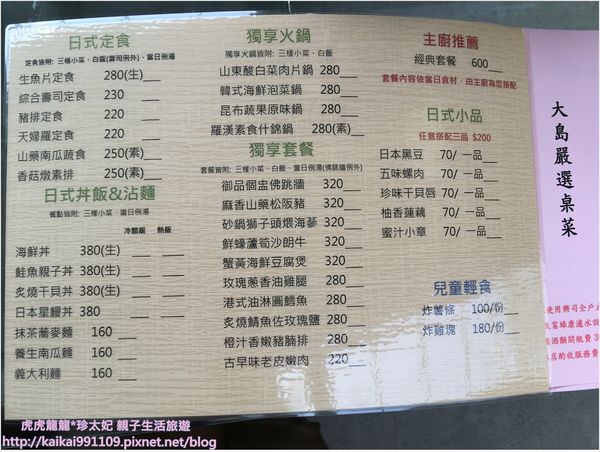 日式定食
定食皆附: 三樣小菜、白飯(壽司例外)、當日例湯
生魚片定食 280(生)
綜合壽司定食 230
豬排定食 220
天婦羅定食 220
山藥南瓜蔬食 250(素)
香菇燉素排 250(素)
日式丼飯&沾麵
餐點皆附: 三樣小菜、當日例湯
冷醋飯 熱飯
海鮮丼 380(生)
鮭魚親子丼 380(生)
炙燒干貝丼 380(生)
日本星鰻丼 380
抹茶蕎麥麵 160
養生南瓜麵 160
義大利麵 160
獨享火鍋
獨享火鍋皆附: 三樣小菜、白飯
山東酸白菜肉片鍋 280
韓式海鮮泡菜鍋 280
昆布蔬果原味鍋 280
羅漢素食什錦鍋 280(素)
獨享套餐
套餐皆附: 三樣小菜、白飯、當日例湯(佛跳牆例外)
御品個盅佛跳牆 320
麻香山藥松阪豬 320
砂鍋獅子頭煨海蔘 320
鮮蠔蘆筍沙朗牛 320
蟹黃海鮮豆腐煲 320
玫瑰蔥香油雞腿 280
港式油淋圓鱈魚 280
炙燒鯖魚佐玫瑰鹽 280
橙汁香嫩豬腩排 280
古早味老皮嫩肉 220
主廚推薦
經典套餐 600
套餐內容依當日食材，由主廚為您搭配
日式小品
任意搭配三品 $200
日本黑豆 70/ 一品
五味螺肉 70/ 一品
珍味干貝唇 70/ 一品
柚香蓮藕 70/ 一品
蜜汁小章 70/ 一品
兒童輕食
炸薯條 100/份
炸雞塊 180/份
大島嚴選桌菜
使用樂司全戶
富綠康濾水設
酒類開瓶費 3
酌收服務費
虎虎龍龍*珍太妃 親子生活旅遊
http://kaikai991109.pixnet.net/blog